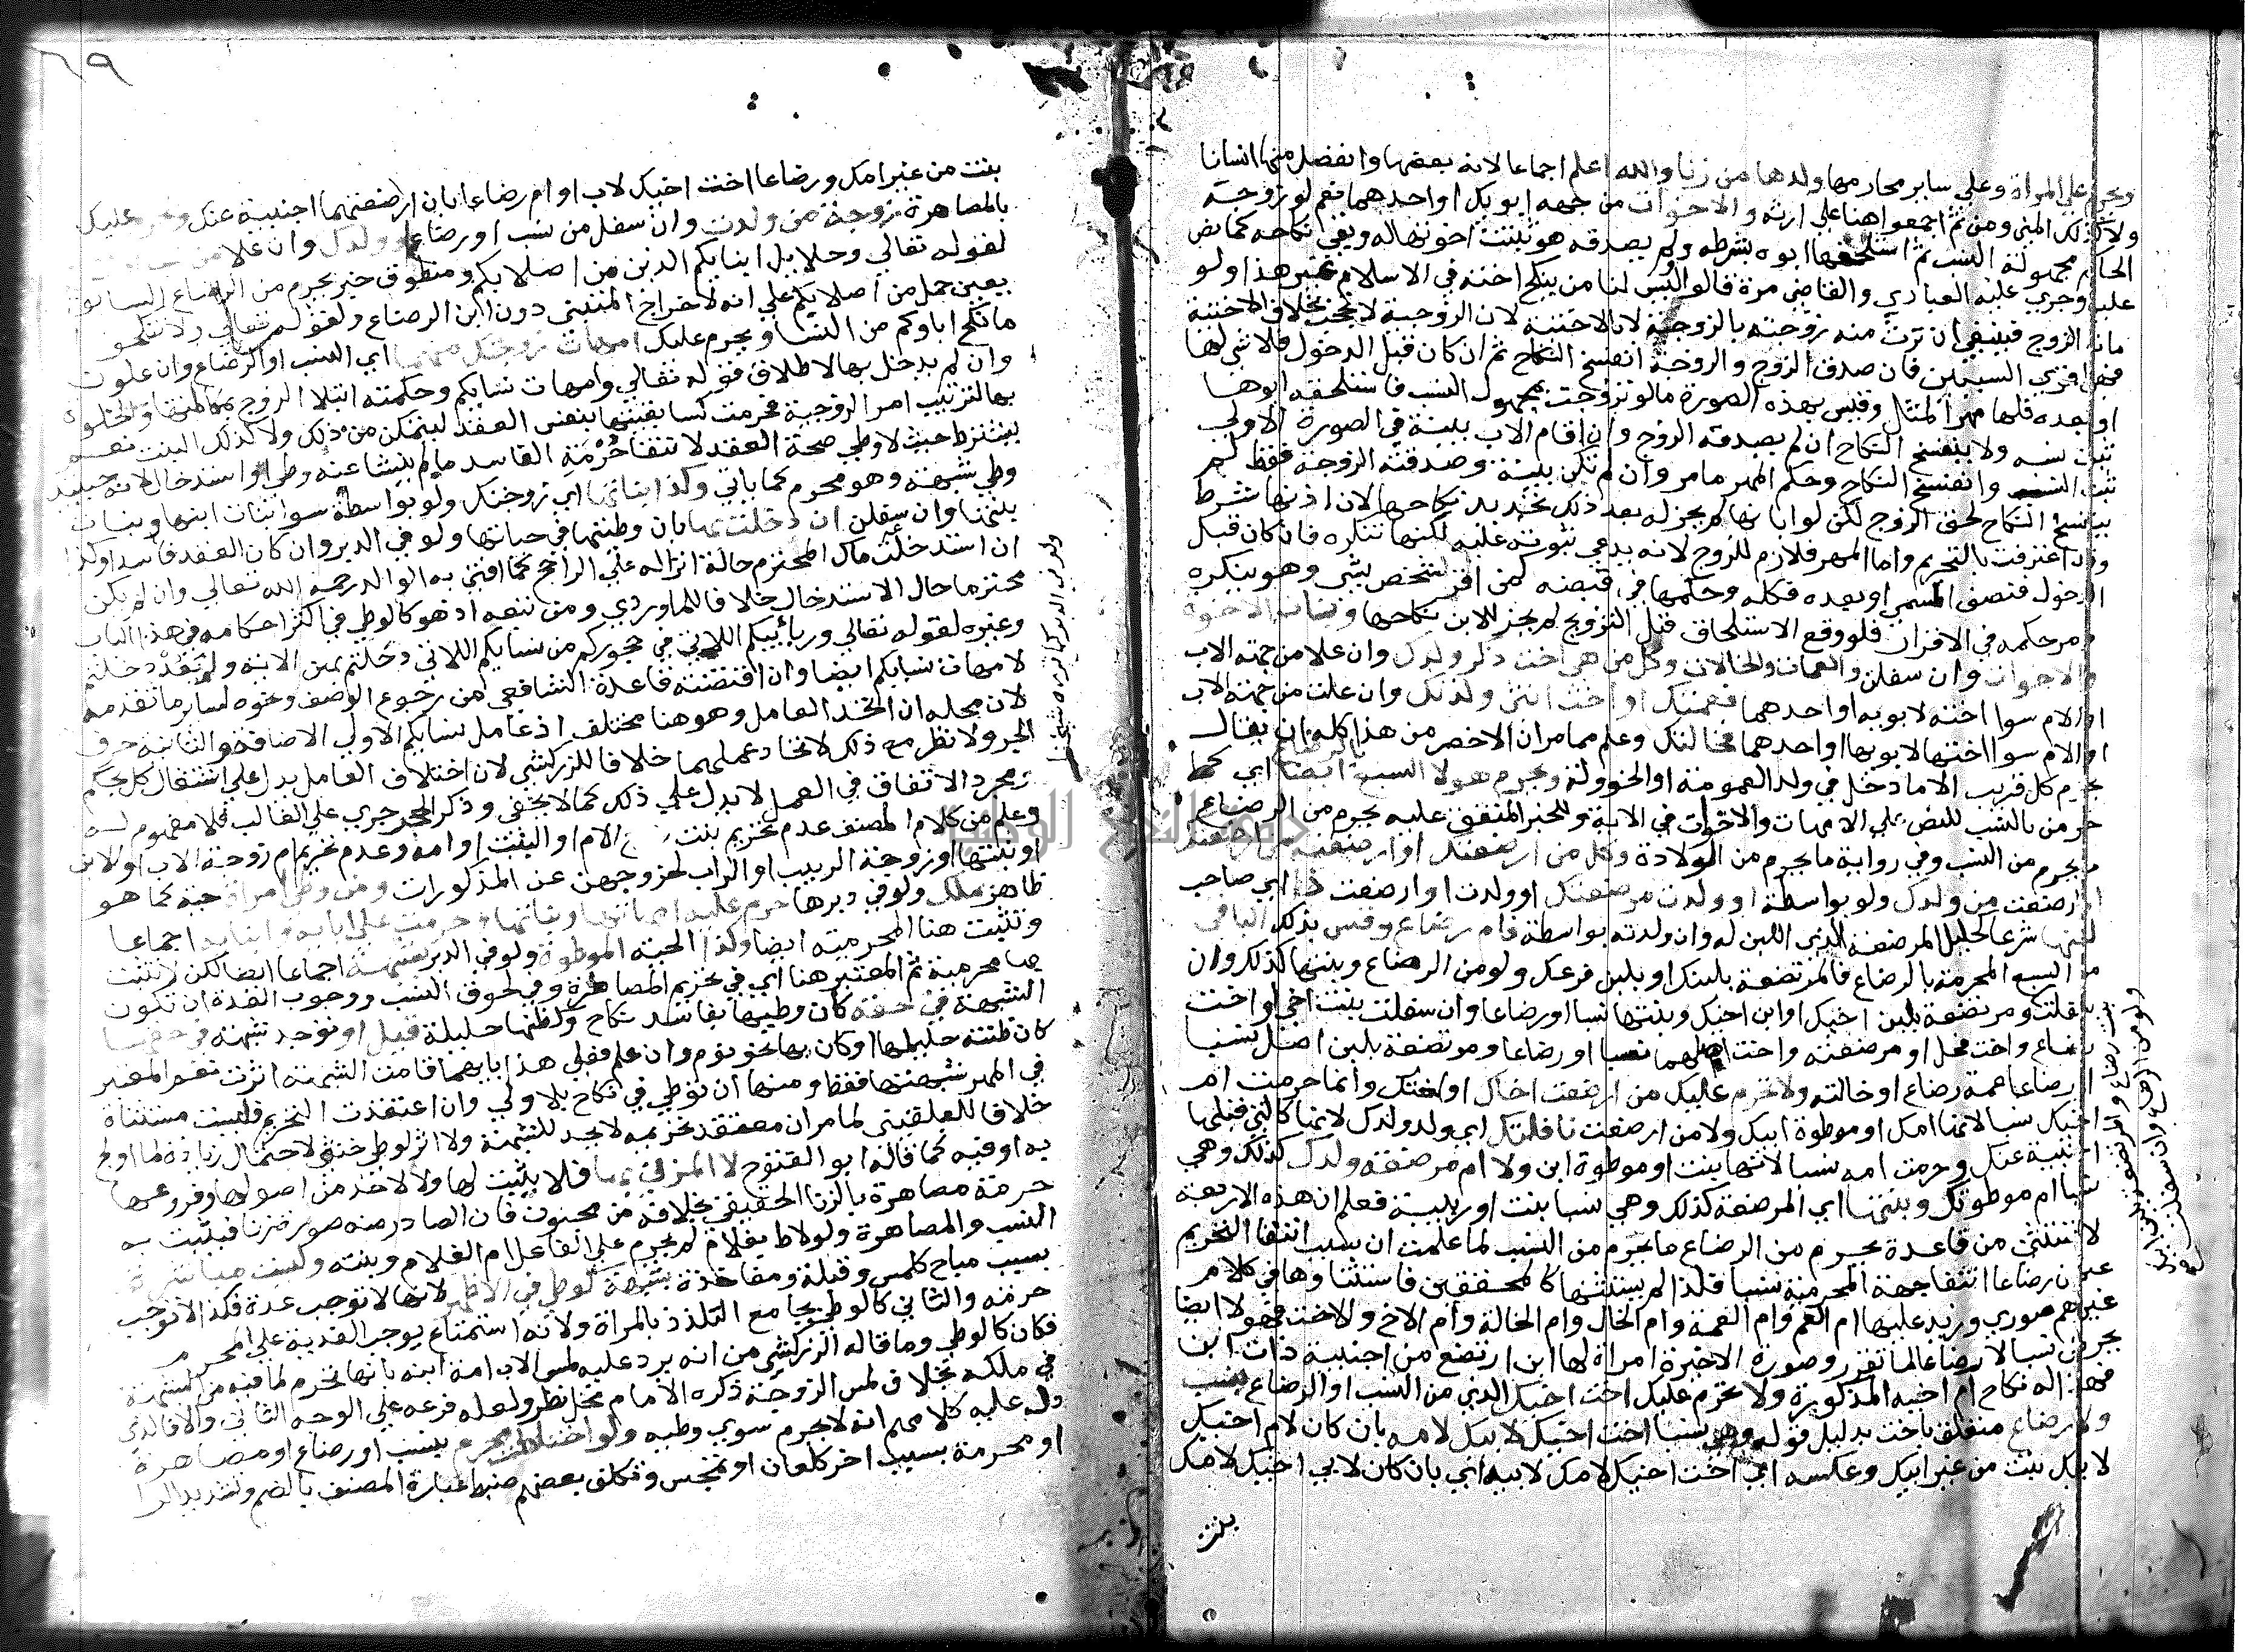 ويحرم علي المراة وعلي ساير محارمها ولدها من زنا والله اعلم اجماعا لانه بعضها وانفصل منها انسانا
ولا كذلك المني ومن ثم اجمعوا هنا علي ارثه والاخوات من جهه ابويك او احدهما نعم لو زوجه
الحاكم مجهولة النسب ثم استلحقها ابوه بشرطه ولم يصدقه هو ثبتت اخوتها له وبقي نكاحه كما نص
عليه وجري عليه العبادي والقاضي مرة قالوا وليس لنا من ينكح اخته في الاسلام غير هذا ولو
مات الزوج فينبغي ان ترث منه زوجته بالزوجية لا بالاختية لان الزوجية لا تحجب بخلاف الاختية
فهي اقوي السببين فان صدق الزوج والزوجة انفسخ النكاح ثم ان كان قبل الدخول فلا شي لها
او بعده فلها مهر المثل وقيس بهذه الصورة ما لو تزوجت بمجهول النسب فاستلحقه ابوها
ثبت نسبه ولا ينفسخ النكاح ان لم يصدقه الزوج وان اقام الاب بينة في الصورة الاولي
ثبت النسب وانفسخ النكاح وحكم المهر ما مر وان لم تكن بينة وصدقته الزوجة فقط لم
ينفسخ النكاح لحق الزوج لكن لو ابانها لم يجز له بعد ذلك تجديد نكاحها لان اذنها شرط
وقد اعترفت بالتحريم واما المهر فلازم للزوج لانه يدعي ثبوته عليه لكنها تنكره فان كان قبل
الدخول فنصف المسمي او بعده فكله وحكمها في قبضه كمن اقر لشخص بشي وهو ينكره
ومر حكمه في الاقرار فلو وقع الاستلحاق قبل التزويج لم يجز للابن نكاحها وبنات الاخوة
والاخوات وان سفلن والعمات والخالات وكل من هي اخت ذكر ولدك وان علا من جهة الاب
او الام سوا اخته لابويه او احدهما فعمتك او اخت انثي ولدتك وان علت من جهة الاب
او الام سوا اختها لابويها او احدهما فخالتك وعلم مما مر ان الاخصر من هذا كله ان يقال
يحرم كل قريب الا ما دخل في ولد العمومة او الخوولة ويحرم هولا السبع بالرضاع ايضا اي كما
حرمن بالنسب للنص علي الامهات والاخوات في الاية وللخبر المتفق عليه يحرم من الرضاع
ما يحرم من النسب وفي رواية ما يحرم من الولادة وكل من ارضعتك او ارضعت من ارضعتك
او ارضعت من ولدك ولو بواسطة او ولدت مرضعتك او ولدت او ارضعت ذا اي صاحب
لبنها شرعا كحليل المرضعة الذي اللبن له وان ولدته بواسطة فام رضاع وقس بذلك الباقي
من السبع المحرمة بالرضاع فالمرتضعة بلبنك او بلبن فرعك ولو من الرضاع وبنتها كذلك وان
سفلت ومرتضعة بلبن اخيك او ابن اخيك وبنتها نسبا او رضاعا وان سفلت بنت اخي او اخت
رضاع واخت فحل او مرضعته واخت اصلهما نسبا او رضاعا ومرتضعة بلبن اصل نسبا
او رضاعا عمة رضاع او خالته ولا تحرم عليك من ارضعت اخاك او اختك وانما حرمت ام
اخيك نسبا لانها امك او موطوة ابيك ولا من ارضعت نافلتك اي ولد ولدك لانها كالتي قبلها
اجنبية عنك وحرمت امه نسبا لانها بنت او موطوة ابن ولا ام مرضعة ولدك كذلك وهي
نسبا ام موطوتك وبنتها اي المرضعة كذلك وهي نسبا بنت او ربيبة فعلم ان هذه الاربعة
لا تستثني من قاعدة يحرم من الرضاع ما يحرم من النسب لما علمت ان سبب انتفا التحريم
عنهن رضاعا انتفا جهة المحرمية نسبا فلذا لم يستثنها كالمحققين فاستثناوها في كلام
غيرهم صوري وزيد عليها ام العم وام العمة وام الخال وام الخالة وام الاخ والاخت فهولا ايضا
يحرمن نسبا لا رضاعا لما تقرر وصورة الاخيرة امراة لها ابن ارتضع من اجنبية ذات ابن
فهذا له نكاح ام اخيه المذكورة ولا تحرم عليك اخت اخيك الذي من النسب او الرضاع بنسب
ولا رضاع متعلق باخت بدليل قوله وهي نسبا اخت اخيك لابيك لامه بان كان لام اخيك
لابيك بنت من غير ابيك وعكسه اي اخت اخيك لامك لابيه اي بان كان لابي اخيك لامك
بنت
٦٩
بنت من غير امك ورضاعا اخت اخيك لاب او ام رضاعا بان ارضعتهما اجنبية عنك وتحرم عليك
بالمصاهرة زوجة من ولدت وان سفل من نسب او رضاع او ولدك وان علا من
لقوله تعالي وحلايل ابنايكم الذين من اصلابكم ومنطوق خبر يحرم من الرضاع السابق
يعين حمل من اصلابكم علي انه لاخراج المتبني دون ابن الرضاع ولقوله تعالي ولا تنكحوا
ما نكح اباوكم من النسا ويحرم عليك امهات زوجتك منهما اي النسب او الرضاع وان علون
وان لم يدخل بها لاطلاق قوله تعالي وامهات نسايكم وحكمته ابتلا الزوج بمكالمتها والخلوة
بها لترتيب امر الزوجية فحرمت كسابقتيها بنفس العقد ليتمكن من ذلك ولا كذلك البنت نعم
يشترط حيث لا وطي صحة العقد لانتفا حرمة الفاسد ما لم ينشا عنه وطي او استدخال لانه حينيذ
وطي شبهة وهو محرم كما ياتي وكذا بناتها اي زوجتك ولو بواسطة سوا بنات ابنها وبنات
بنتها وان سفلن ان دخلت بها بان وطيتها في حياتها ولو في الدبر وان كان العقد فاسدا وكذا
ان استدخلت ماك المحترم حالة انزاله علي الراجح كما افتي به الوالد رحمه الله تعالي وان لم يكن
محترما حال الاستدخال خلافا للماوردي ومن تبعه اذ هو كالوطي في اكثر احكامه في هذا الباب
وغيره لقوله تعالي ورباييبكم اللاتي في حجوركم من نسايكم اللاتي دخلتم بهن الاية ولم يعد دخلتم
لامهات نسايكم ايضا وان اقتضته قاعدة الشافعي من رجوع الوصف ونحوه لساير ما تقدمه
لان محله ان اتحد العامل وهو هنا مختلف اذ عامل نسايكم الاولي الاضافة والثانية حرف
الجر ولا نظر مع ذلك لاتحاد عملهما خلافا للزركشي لان اختلاف العامل يدل علي استقلال كل بحكم
ومجرد الاتفاق في العمل لا يدل علي ذلك كما لا يخفي وذكر الحجر جري علي الغالب فلا مفهوم له
وعلم من كلام المصنف عدم تحريم بنت زوج الام او البنت او امه وعدم تحريم ام زوجة الاب او الابن
او بنتها او زوجة الربيب او الراب لخروجهن عن المذكورات ومن وطي امراة حية كما هو
ظاهر بملك ولو في دبرها حرم عليه امهاتها وبناتها وحرمت علي ابايه وابنايه اجماعا
وتثبت هنا المحرمية ايضا وكذا الحية الموطوة ولو في الدبر بشبهة اجماعا ايضا لكن لا تثبت
بها محرمية ثم المعتبر هنا اي في تحريم المصاهرة وفي لحوق النسب ووجوب العدة ان تكون
الشبهة في حقه كان وطيها بفاسد نكاح ولظنها حليلة قيل او توجد شبهة في حقها
كان ظنته حليلها او كان بها نحو نوم وان علم فعلي هذا بايهما قامت الشبهة اثرت نعم المعتبر
في المهر شبهتها فقط ومنها ان توطي في نكاح بلا ولي وان اعتقدت التحريم فليست مستثناة
خلافا للبلقيني لما مر ان معتقد تحريمه لا يحد للشبهة ولا اثر لوطي خنثي لاحتمال زيادة ما اولج
به او فيه كما قاله ابو الفتوح لا المزني بها فلا يثبت لها ولا لاحد من اصولها وفروعها
حرمة مصاهرة بالزنا الحقيقي بخلافه من مجنون فان الصادر منه صورة زنا فيثبت به
النسب والمصاهرة ولو لاط بغلام لم يحرم علي الفاعل ام الغلام وبنته وليست مباشرة
بسبب مباح كلمس وقبلة ومفاخذة بشبهة كوطي في الاظهر لانها لا توجب عدة فكذا لا توجب
حرمه والثاني كالوطي بجامع التلذذ بالمراة ولانه استمتاع يوجب الفدية علي المحرم
فكان كالوطي وما قاله الزركشي من انه يرد عليه لمس الاب امة ابنه بانها تحرم لما فيه من الشبهة
في ملكه بخلاف لمس الزوجة ذكره الامام محل نظر ولعله فرعه علي الوجه الثاني والا فالذي
دل عليه كلامهم انه لا يحرم سوي وطيه ولو اختلطت محرم بنسب او رضاع او مصاهرة
او محرمة بسبب اخر كلعان او تمجس وتكلف بعضهم ضبط عبارة المصنف بالضم وتشديد الرا